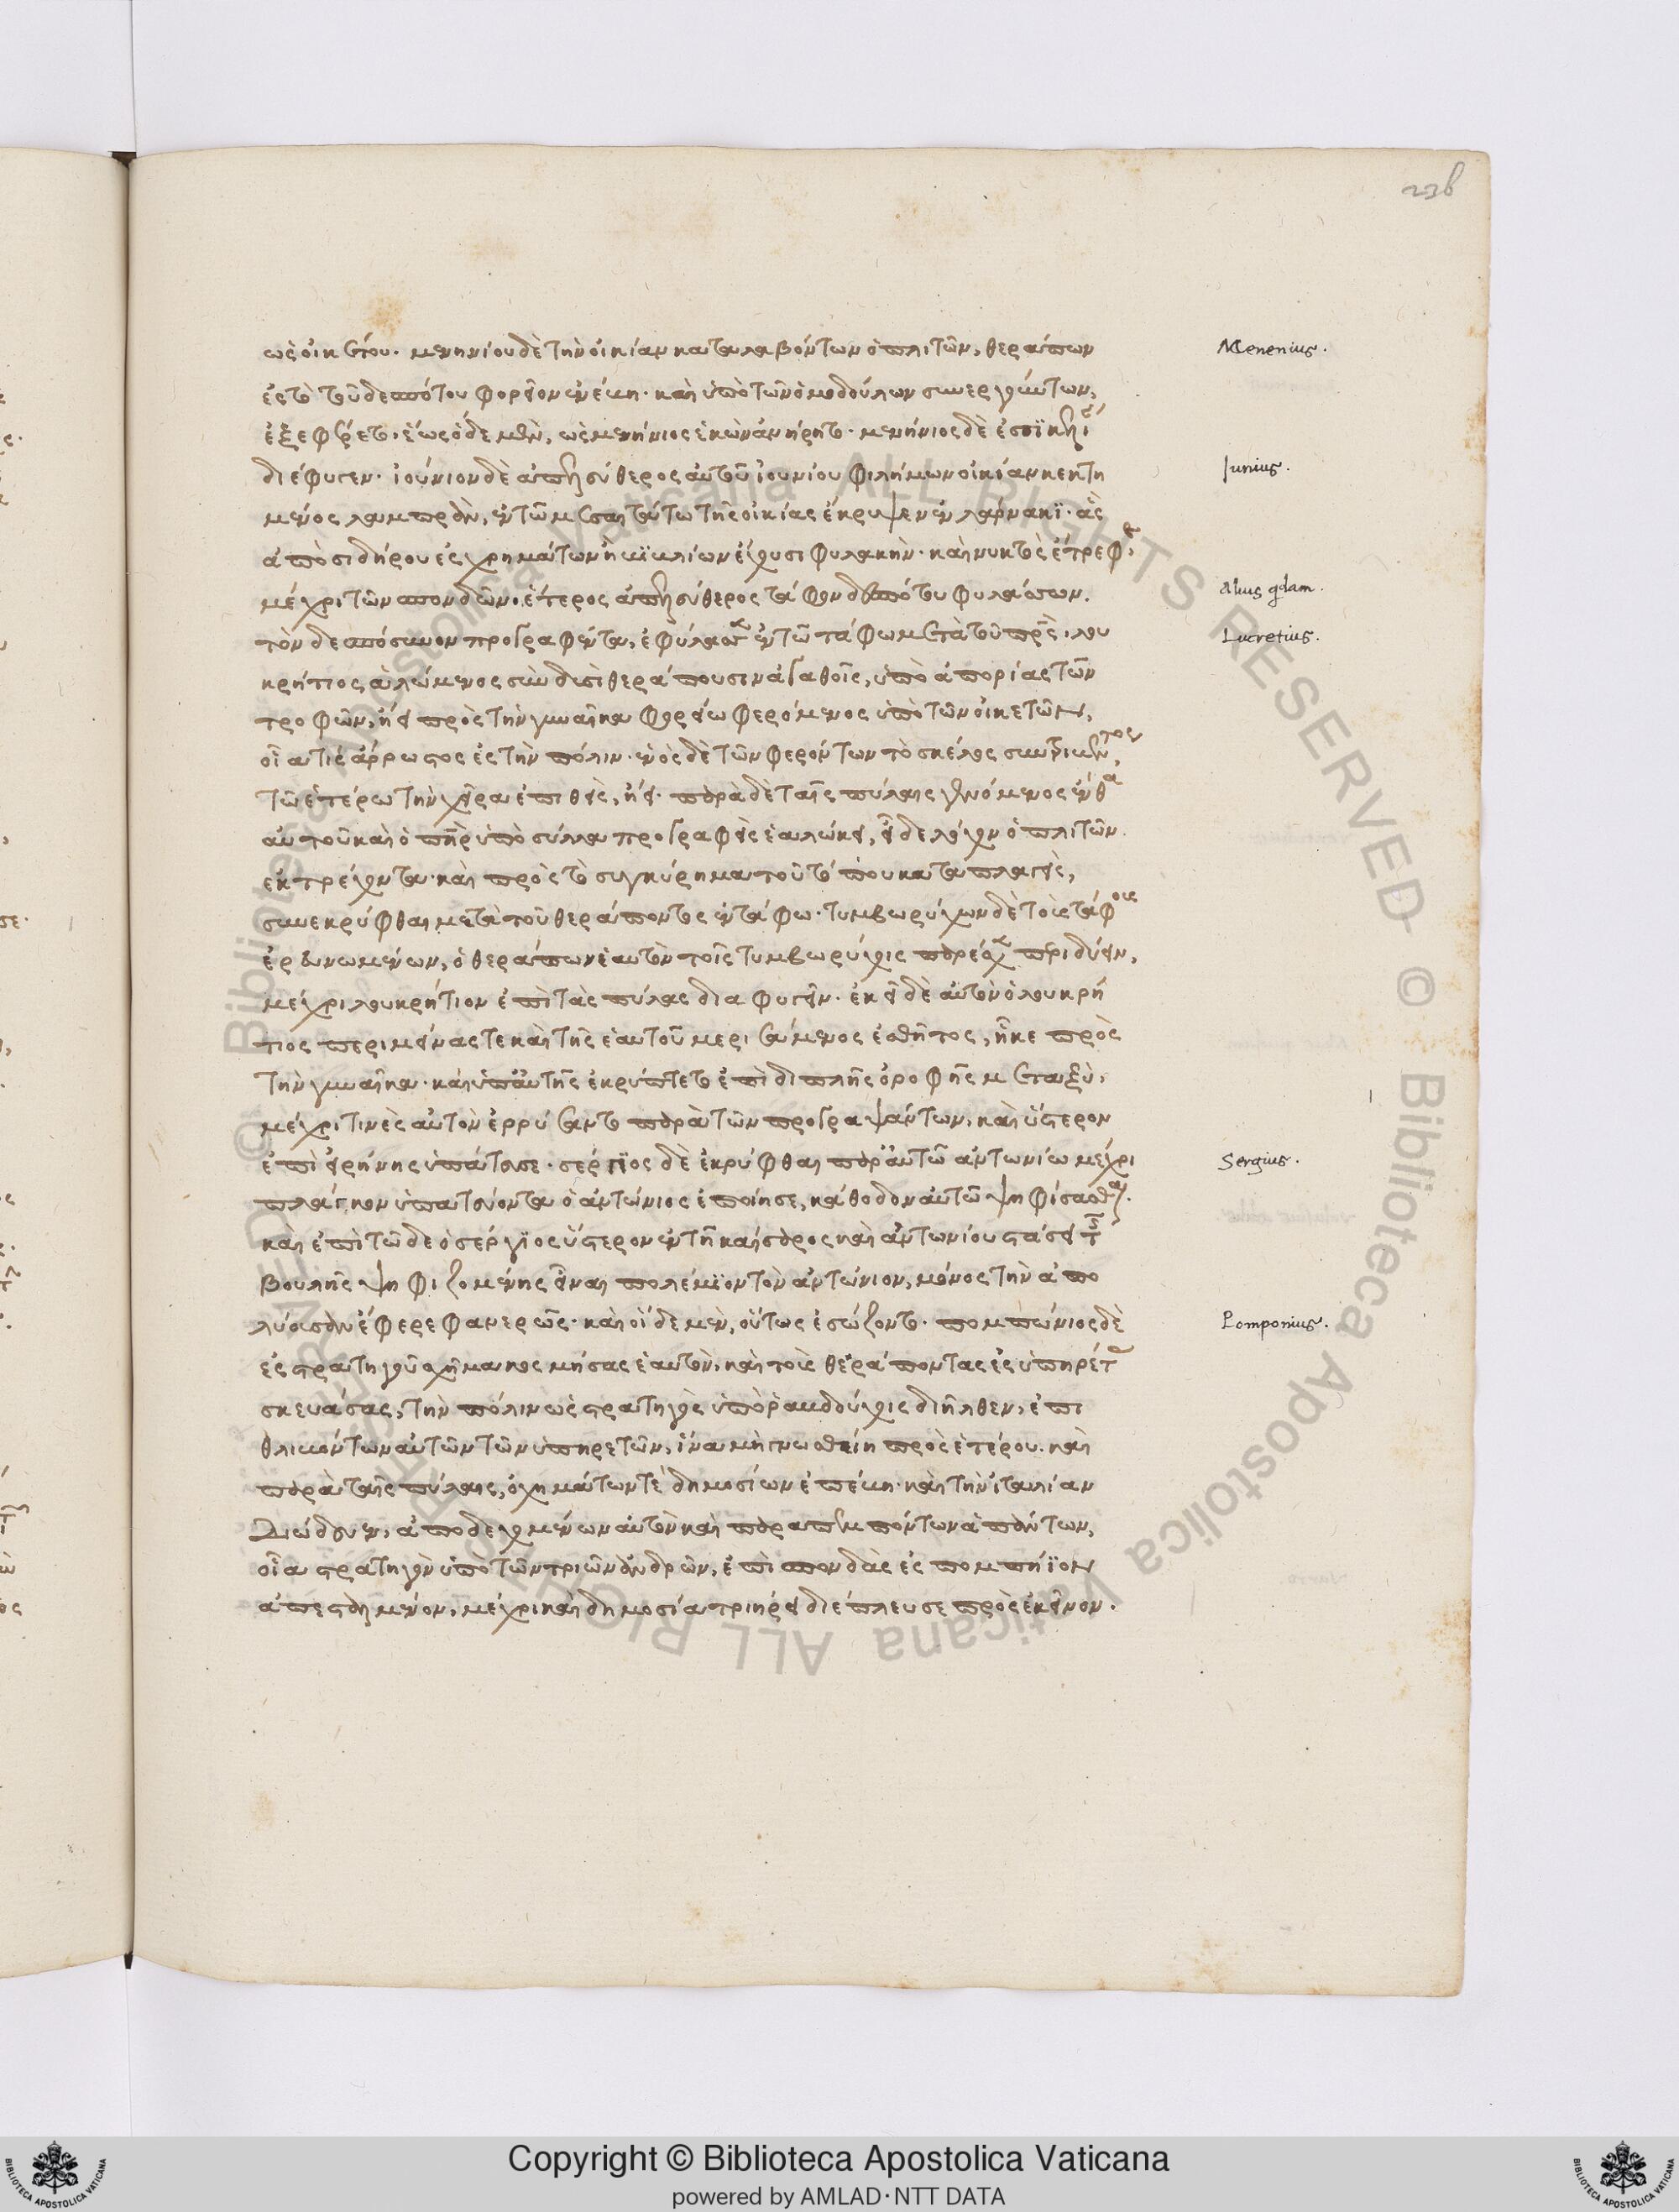 238
ὡς οἰκέτου. μενηνίου δὲ τὴν οἰκίαν καταλαβόντων ὁπλιτῶν, θεράπων
ἐς τὸ τοῦ δεσπότου φορεῖον ἐνέβη. καὶ ὑπὸ τῶν ὁμοδούλων συνεργούντων,
ἐξεφέρετο, ἕως ὅδε μὲν, ὡς μενήνιος ἑκὼν ἀνῄρητο. μενήνιος δὲ ἐς σικελίαν
διέφυγεν. ἰούνιον δὲ ἀπελεύθερος αὐτοῦ ἰουνίου φιλήμων οἰκίαν κεκτη
μένος λαμπρὰν, ἐν τῷ μεσαιτάτῳ τῆς οἰκίας ἔκρυψεν ἐν λάρνακϊ. ἃς
ἀπὸ σιδήρου ἐς χρημάτων ἢ βιβλίων ἔχουσι φυλακὴν. καὶ νυκτὸς ἔτρεφε,
μέχρι τῶν σπονδῶν. ἕτερος ἀπελεύθερος τάφον δεσπότου φυλάσσων,
τὸν δεσπόσυνον προγραφέντα, ἐφύλασσεν ἐν τῷ τάφῳ μετὰ τοῦ πατρὸς. λου
κρήτιος ἀλώμενος σὺν δυσὶ θεράπουσιν ἀγαθοῖς, ὑπὸ ἀπορίας τῶν
τροφῶν, ᾔει πρὸς τὴν γυναῖκα φορείῳ φερόμενος ὑπὸ τῶν οἰκετῶν,
οἷά τις ἄρρωστος ἐς τὴν πόλιν. ἑνὸς δὲ τῶν φερόντων τὸ σκέλος συντριβέντος,
τῷ ἑτέρῳ τὴν χεῖρα ἐπιθεὶς, ᾔει. παρὰ δὲ ταῖς πύλαις γενόμενος ἔνθα
αὐτοῦ καὶ ὁ πατὴρ ὑπὸ σύλλα προγραφεὶς ἑαλώκει, εἶδε λόχον ὁπλιτῶν
ἐκτρέχοντα. καὶ πρὸς τὸ συγκύρημα τοῦ τόπου καταπλαγεὶς,
συνεκρύφθαι μετὰ τοῦ θεράποντος ἐν τάφῳ. τυμβωρύχων δὲ τοὺς τάφους
ἐρευνωμένων, ὁ θεράπων ἑαυτὸν τοῖς τυμβωρύχοις παρέσχε περιδύειν,
μέχρι λουκρήτιον ἐπὶ τὰς πύλας διαφυγεῖν. ἐκεῖ δὲ αὐτὸν ὁ λουκρή
τιος περιμείνας τε καὶ τῆς ἑαυτοῦ μερισάμενος ἐσθῆτος, ἧκε πρὸς
τὴν γυναῖκα. καὶ ὑπ' αὐτῆς ἐκρύπτετο ἐπὶ διπλῆς ὀροφῆς μεταξὺ,
μέχρι τινὲς αὐτὸν ἐρρύσαντο παρὰ τῶν προγραψάντων. καὶ ὕστερον
ἐπὶ εἰρήνης ὑπάτευσε. σέργϊος δὲ ἐκρύφθαι παρ' αὐτῷ ἀντωνίῳ μέχρι
πλάγκον ὑπατεύοντα ὁ ἀντώνιος ἐποίησε, κάθοδον αὐτῷ ψηφίσασθαι.
καὶ ἐπὶ τῷδε ὁ σέργϊος ὕστερον ἐν τῇ καίσαρος καὶ ἀντωνίου στάσει τῆς
βουλῆς ψηφιζομένης εἶναι πολέμϊον τὸν ἀντώνιον, μόνος τὴν ἀπο
λύουσαν ἔφερε φανερῶς. καὶ οἵδε μὲν, οὕτως ἐσώζοντο. πομπώνιος δὲ
ἐς στρατηγοῦ σχῆμα κοσμήσας ἑαυτὸν, καὶ τοὺς θεράποντας ἐς ὑπηρέτας
σκευάσας, τὴν πόλιν ὡς στρατηγὸς ὑπὸ ῥαβδούχοις διῆλθεν, ἐπι
θλιβόντων αὐτὸν τῶν ὑπηρετῶν, ἵνα μὴ γνωσθείη πρὸς ἑτέρου. καὶ
παρὰ ταῖς πύλαις, ὀχημάτων τὲ δημοσίων ἐπέβη. καὶ τὴν ἰταλίαν
διώδευεν, ἀποδεχομένων αὐτὸν καὶ παραπεμπόντων ἁπάντων,
οἷα στρατηγὸν ὑπὸ τῶν τριῶν ἀνδρῶν, ἐπὶ σπονδὰς ἐς πομπήϊον
ἀπεσταλμένον, μέχρι καὶ δημοσίᾳ τριήρει διέπλευσε πρὸς ἐκεῖνον.
Menenius.
Junius.
Alius qdam.
Lucretius.
Sergius.
Pomponius.
© Biblioteca Apostolica Vaticana ALL RIGHTS RESERVED
Copyright © Biblioteca Apostolica Vaticana
powered by AMLAD·NTT DATA
BIBLIOTECA APOSTOLICA VATICANA
BIBLIOTECA APOSTOLICA VATICANA